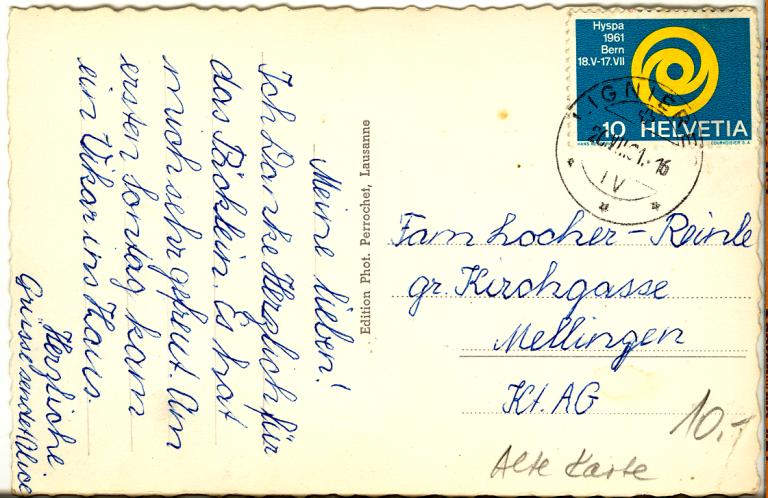 Meine lieben!
Ich Danke Herzlich für
das Päcklein. Es hat
mich sehr gefreut. Am
ersten Sontag kam
ein Vikar ins Haus.
Herzliche
Grüsse sendet Alice
Edition Phot. Perrochet, Lausanne
Hyspa
1961
Bern
18.V-17.VII
10 HELVETIA
COURVOISIER S.A.
LIGNIÈRES
Fam Locher - Reinle
gr. Kirchgasse
Mellingen
Kt. AG
10.-
Alte Karte